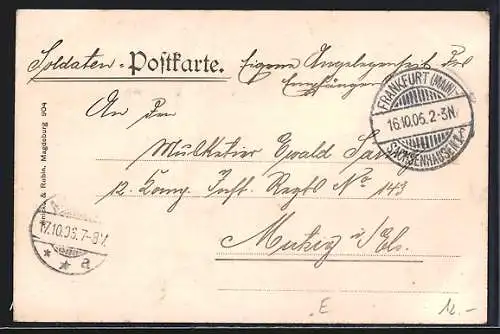 Soldaten - Postkarte. Eigene Angelegenheit des
Empfängers
An den
Musketier Ewald
12. Komp. Inft. Regts No 143
Mutzig i/Els.
FRANKFURT (MAIN)-
16.10.05.2-3N.
SACHSENHAUSEN
17.10.05.7-8V.
* * a
& Rubin, Magdeburg 904
E
12.-